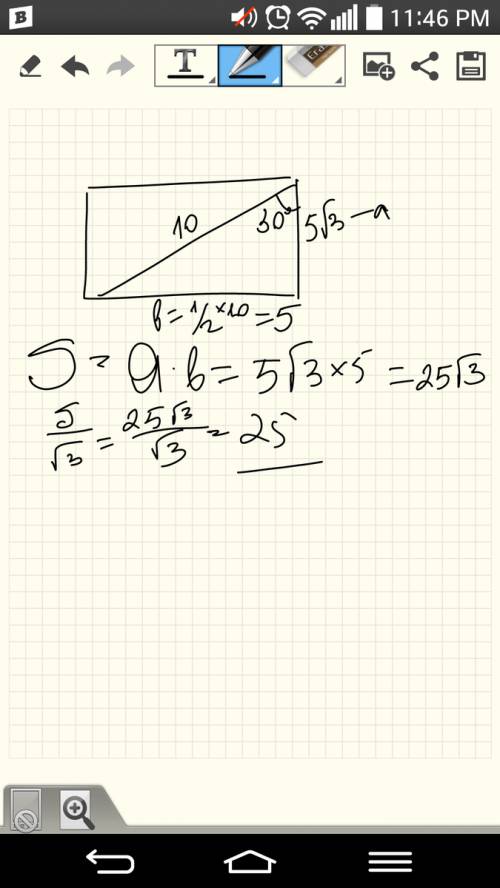 B 11:46 PM
T
Eras
10
30° 5√3 – a
b = 1/2 × 10 = 5
S = a · b = 5√3 × 5 = 25√3
S/√3 = 25√3/√3 = 25